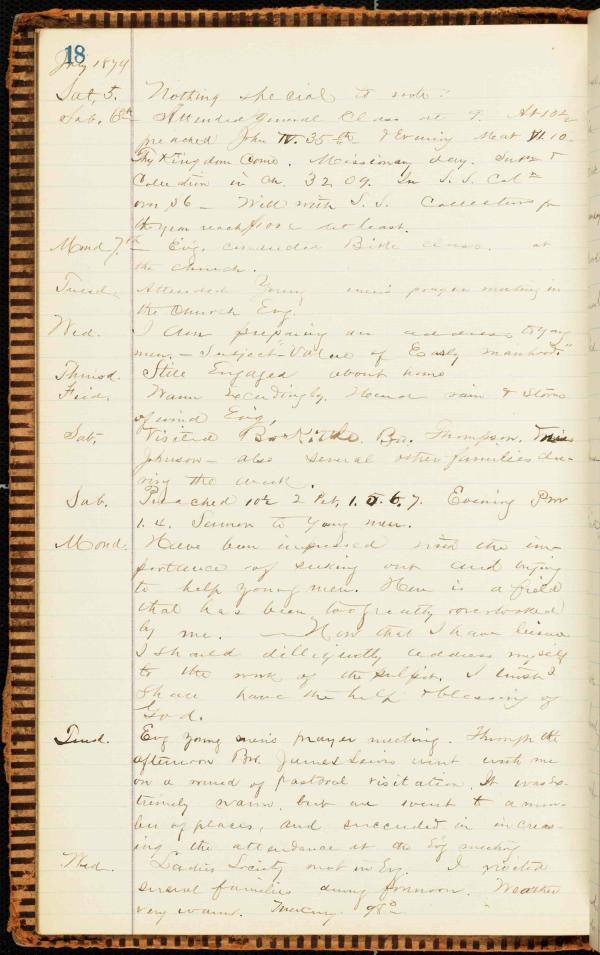 18
July 1879
Sat, 5. Nothing special to note.
Sab. 6th Attended General Class at 9. At 10½
preached John IV. 35 & Evening Mat VI. 10.
Thy Kingdom Come. Missionary day.
Collection in Ch. 32.09. In S. S. Col
over $6 – Will with S. S. Collections for
the year reach $100 at least.
Mond 7th – Evg. conducted Bible class. at
the church.
Tuesd. Attended Young men's prayer meeting in
the Church Evg.
Wed. I am preparing an address to young
men. – Subject "Value of Early manhood."
Thursd. Still Engaged about home
Frid. Warm exceedingly. Heavy rain & storm
of wind Evg.
Sat. Visited Bro. Thompson. Miss
Johnson – also several other families du-
ring the week.
Sab. Preached 10½ 2 Pet, 1. 5. 6. 7. Evening Prov
1. 4. Sermon to Young men.
Mond. Have been impressed with the im-
portance of seeking out and trying
to help young men. Here is a field
that has been too greatly overlooked
by me. – Now that I have leisure
I should dilligently address myself
to the work of the pulpit. I trust I
shall have the help & blessing of
God.
Tuesd. Evg young men's prayer meeting. Through the
afternoon Bro. James went with me
on a round of pastoral visitation. It was ex-
tremely warm, but we went to a num-
ber of places, and succeeded in increas-
ing the attendance at the Evg meeting
Wed. Ladies Society met in Evg. I visited
several families during forenoon. Weather
very warm. Mercury 98°